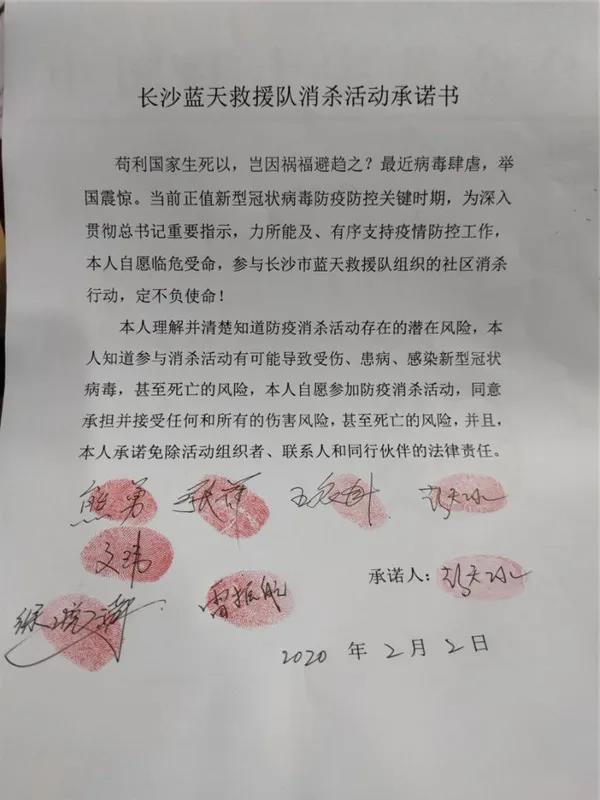 长沙蓝天救援队消杀活动承诺书
苟利国家生死以，岂因祸福避趋之？最近病毒肆虐，举
国震惊。当前正值新型冠状病毒防疫防控关键时期，为深入
贯彻总书记重要指示，力所能及、有序支持疫情防控工作，
本人自愿临危受命，参与长沙市蓝天救援队组织的社区消杀
行动，定不负使命！
本人理解并清楚知道防疫消杀活动存在的潜在风险，本
人知道参与消杀活动有可能导致受伤、患病、感染新型冠状
病毒，甚至死亡的风险，本人自愿参加防疫消杀活动，同意
承担并接受任何和所有的伤害风险，甚至死亡的风险，并且，
本人承诺免除活动组织者、联系人和同行伙伴的法律责任。
熊勇
文玮
承诺人：
雷振航
2020 年 2 月 2 日